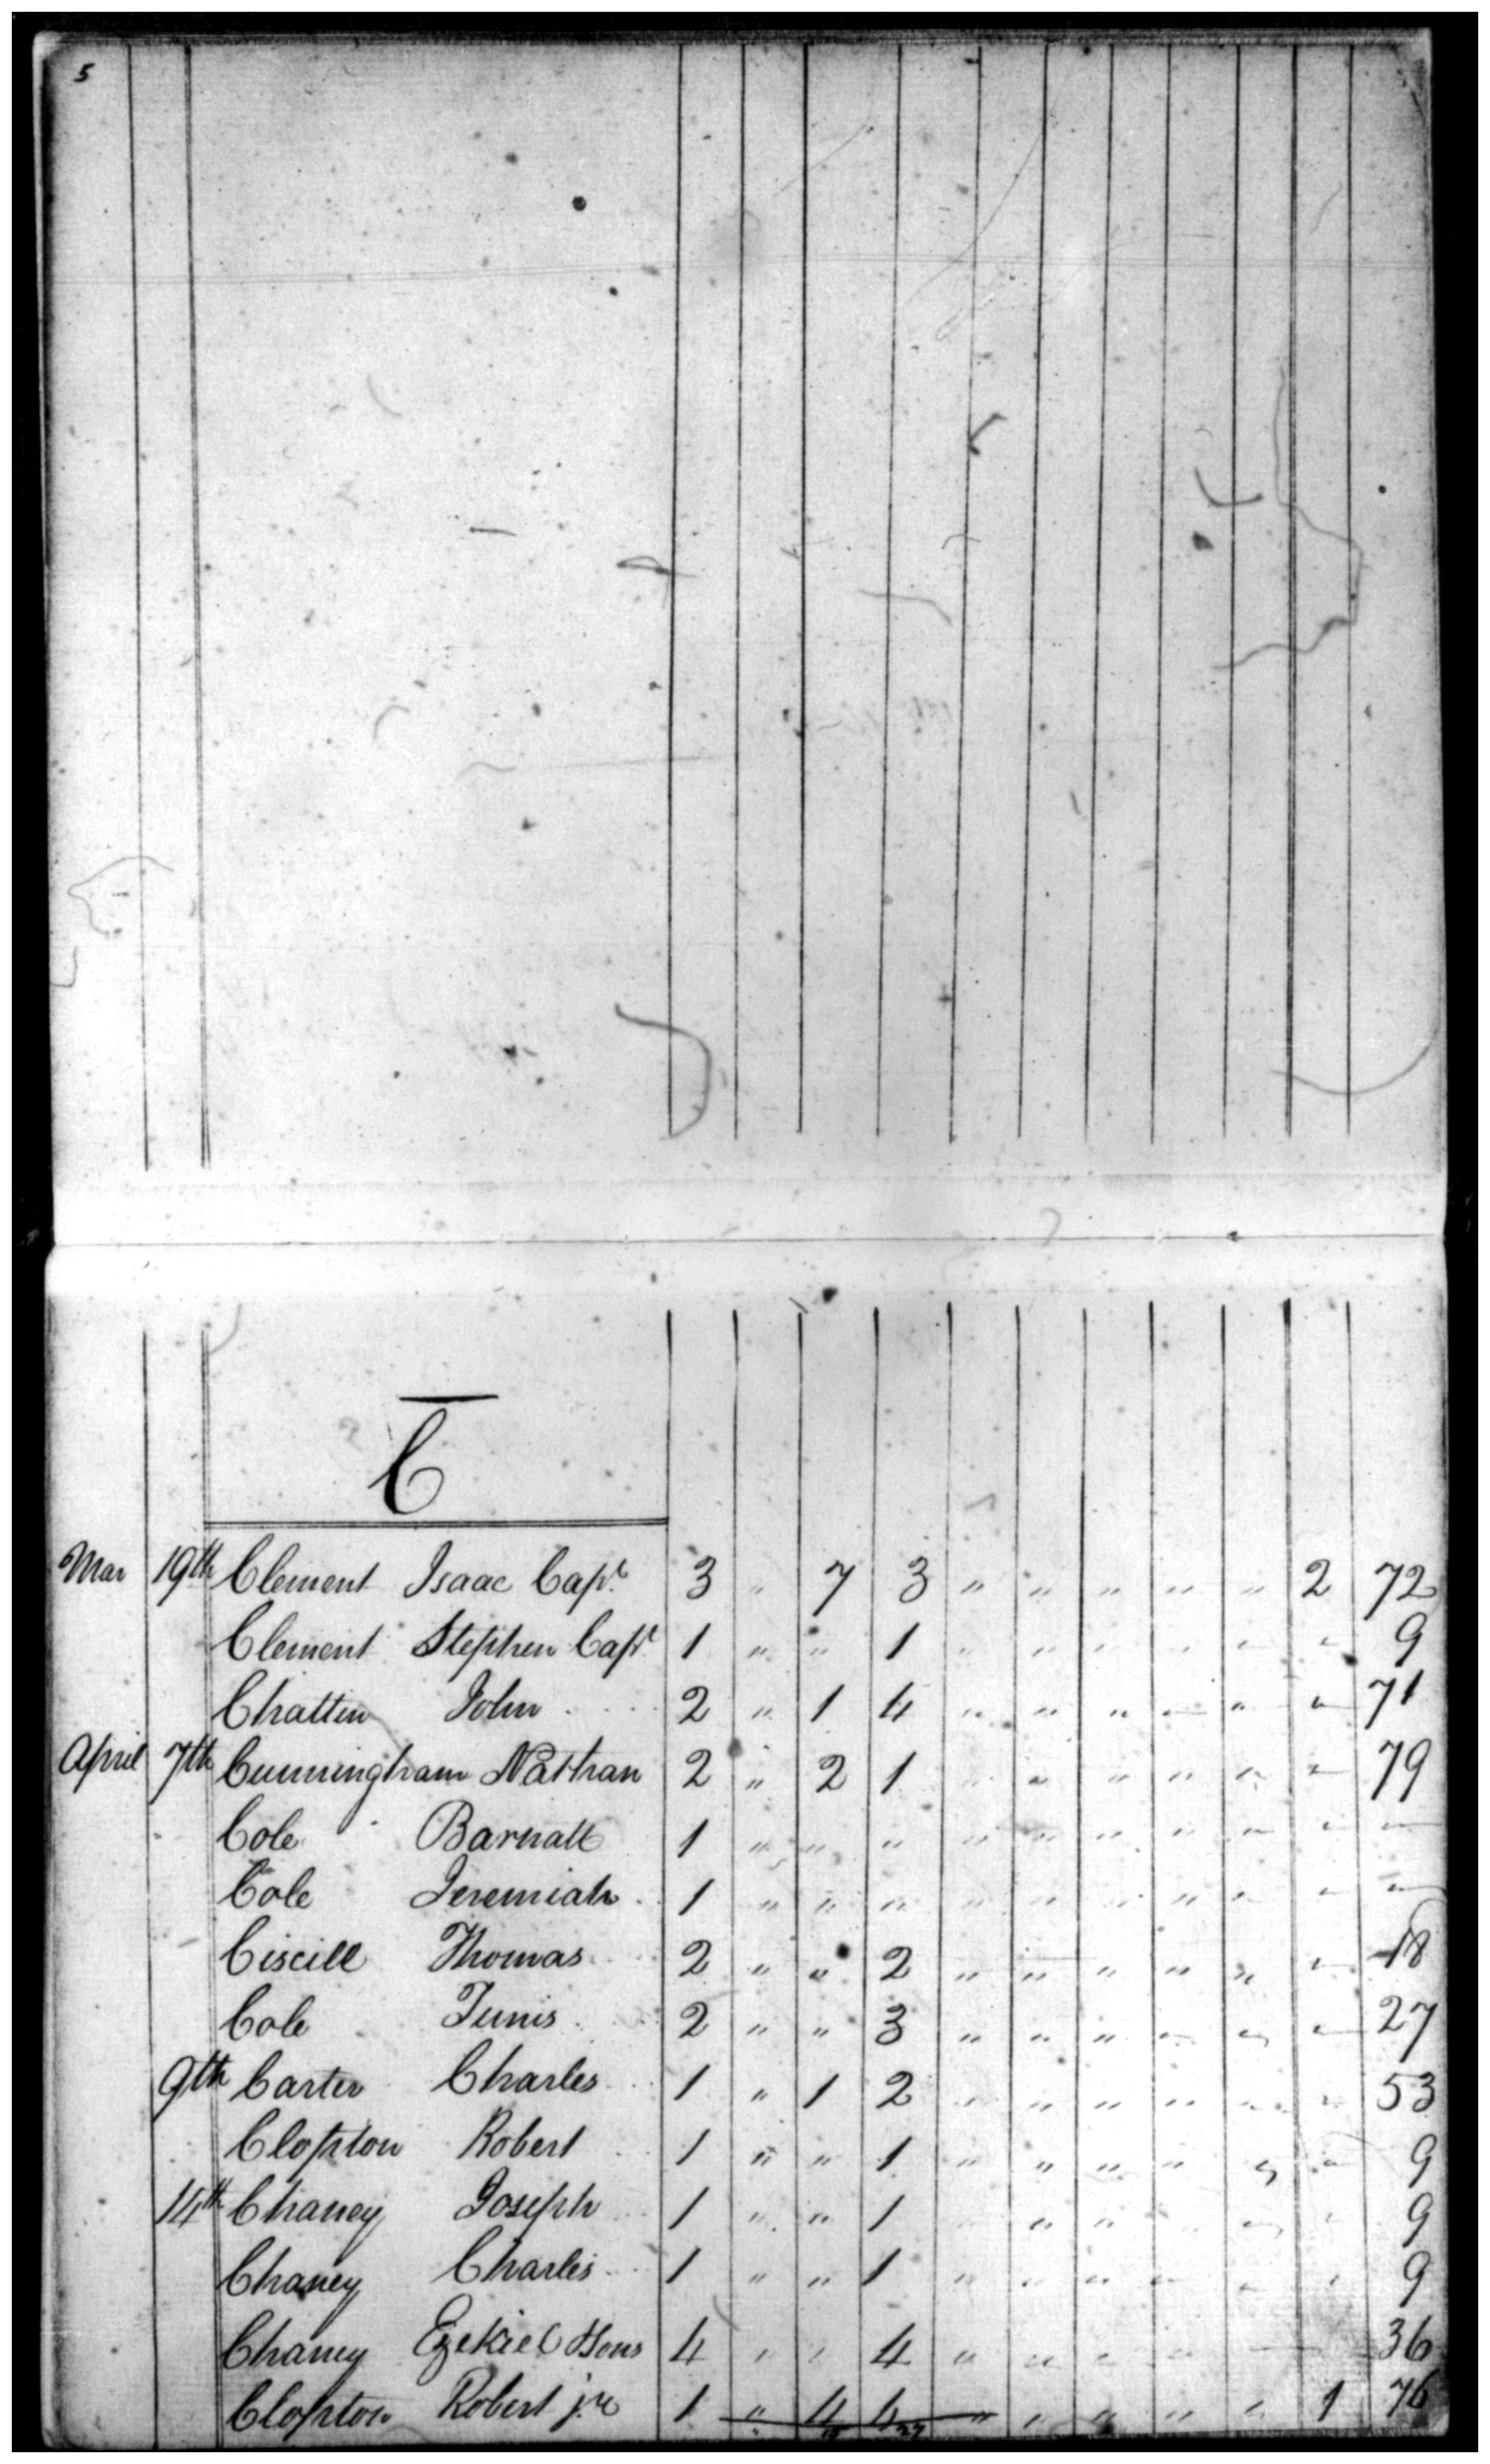 5
C
Mar 19th Clement Isaac Capt 3 " 7 3 " " " " " 2 72
Clement Stephen Capt 1 " " 1 " " " " " " 9
Chattin John 2 " 1 4 " " " " " " 71
April 7th Cunningham Nathan 2 " 2 1 " " " " " " 79
Cole Barnatt 1 " " " " " " " " " "
Cole Jeremiah 1 " " " " " " " " " "
Ciscill Thomas 2 " " 2 " " " " " " 18
Cole Tunis 2 " " 3 " " " " " " 27
9th Carter Charles 1 " 1 2 " " " " " " 53
Clopton Robert 1 " " 1 " " " " " " 9
14th Chaney Joseph 1 " " 1 " " " " " " 9
Chaney Charles 1 " " 1 " " " " " " 9
Chaney Ezekiel & Sons 4 " " 4 " " " " 36
Clopton Robert jr 1 " 4 4 " " " " " 1 76